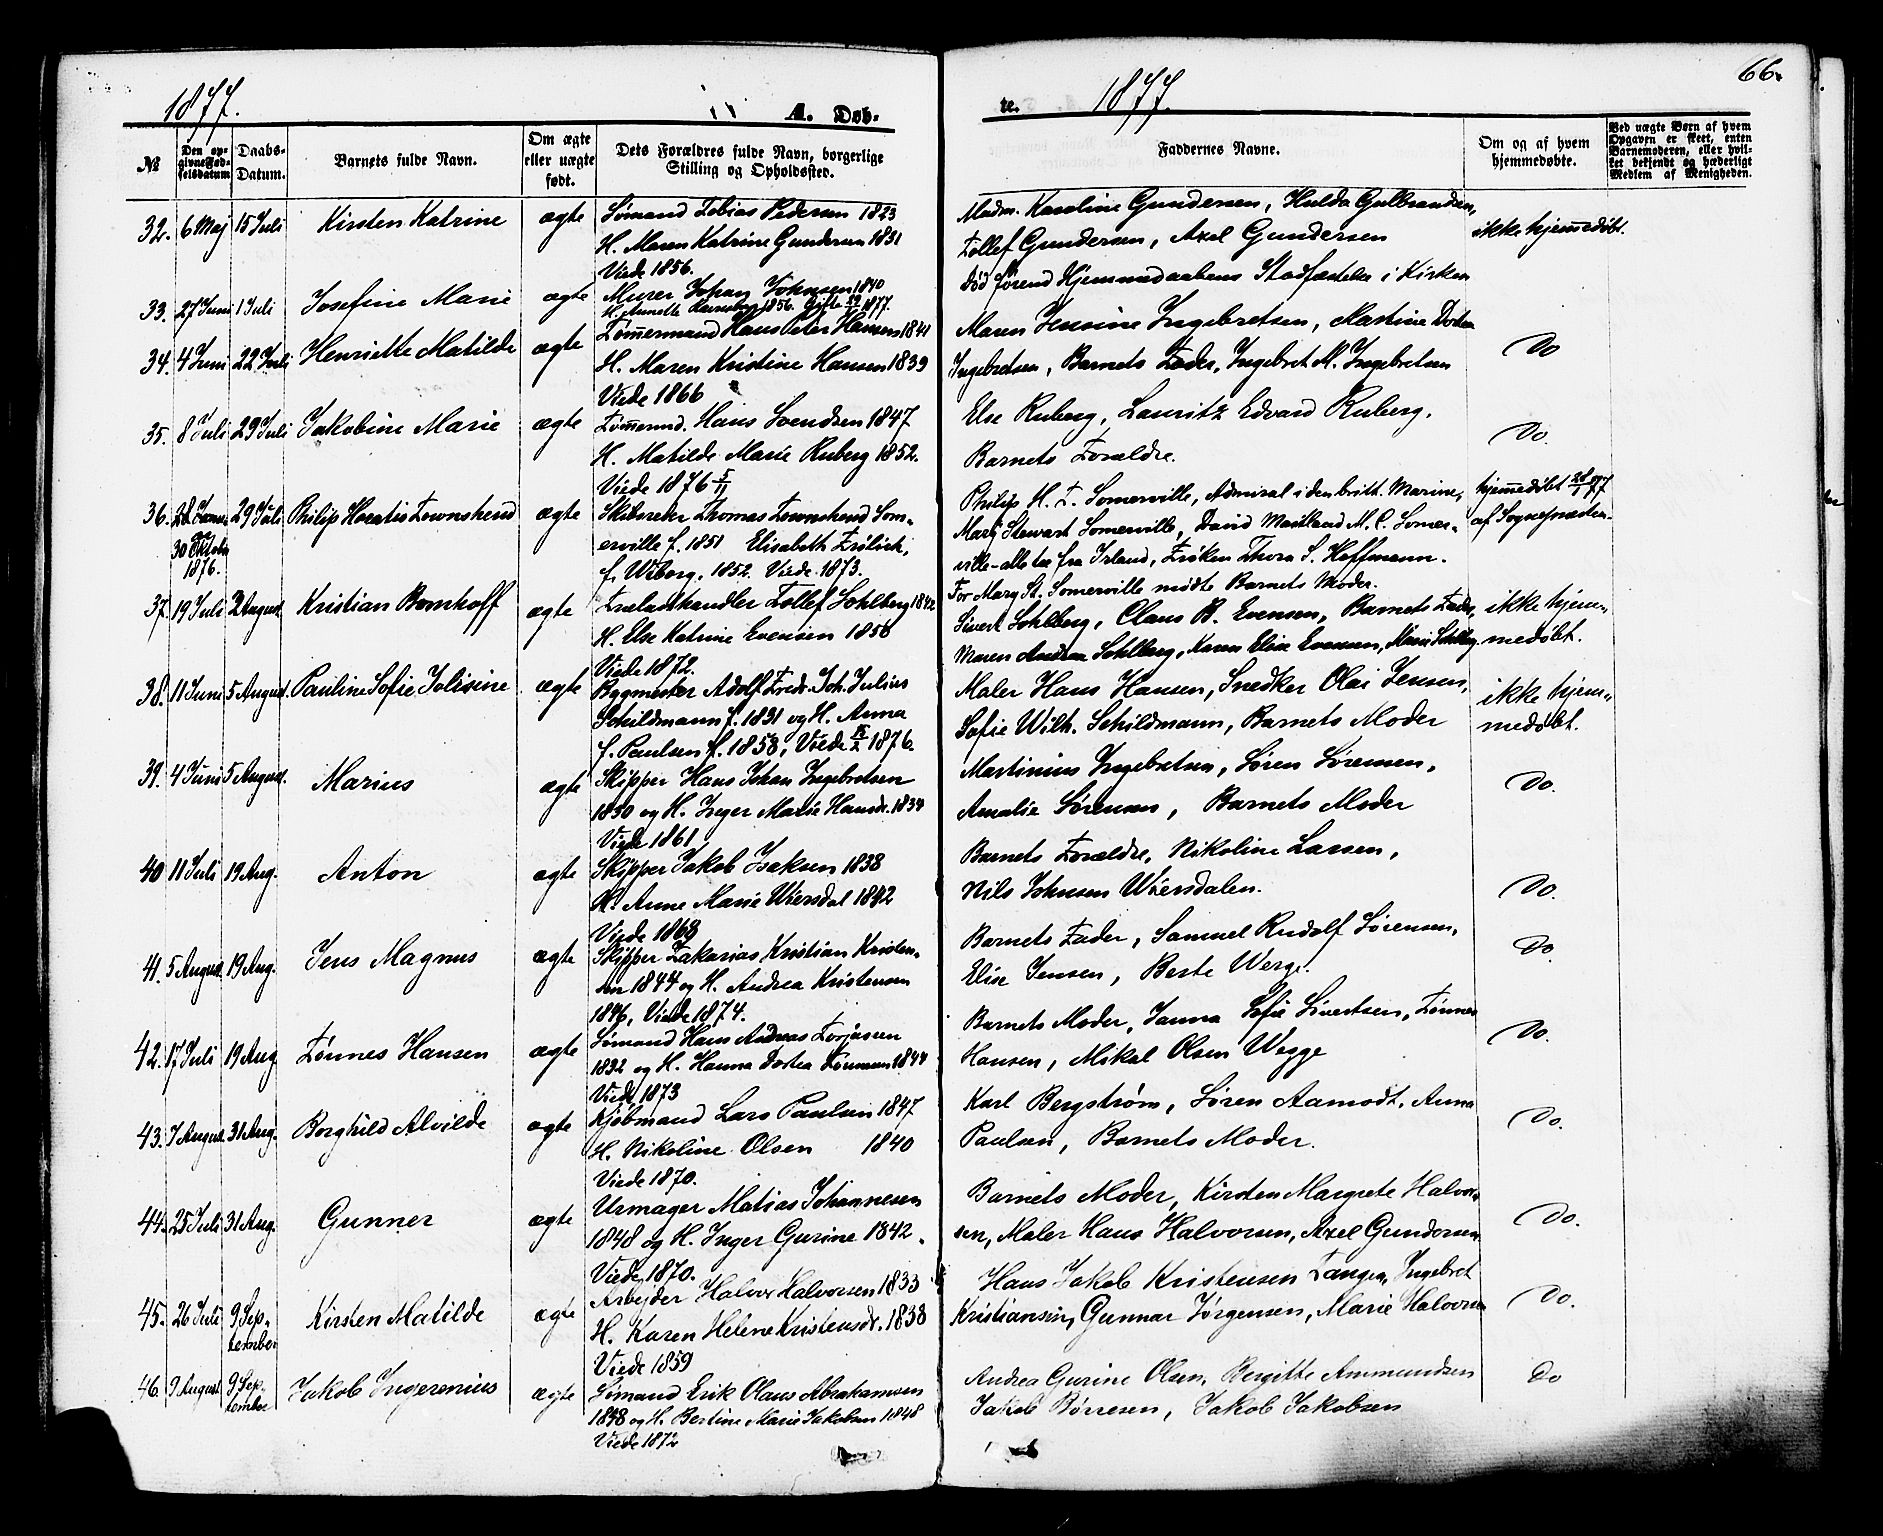 1877.
A. Døb-
te.
1877.
66.
№
Den op-
givne Fød-
selsdatum
Daabs-
Datum.
Barnets fulde Navn.
Om ægte
eller uægte
født.
Dets Forældres fulde Navn, borgerlige
Stilling og Opholdssted.
Faddernes Navne.
Om og af hvem
hjemmedøbte.
Ved uægte Børn af hvem
Opgaven er skeet, enten
Barnemoderen, eller hvil-
ket bekjendt og hæderligt
Medlem af Menigheden.
32. 6 Maj 15 Juli Kirsten Katrine ægte
Sømand Tobias Pedersen 1823
H. Maren Katrine Gundersen 1831
Viede 1856.
Madm. Karoline Gundersen, Hulda Gulbrandsen,
Tollef Gundersen, Axel Gundersen
ikke hjemmedøbt.
33. 27 Juni 1 Juli Josefine Marie ægte
Murer Johan Johnsen 1840
1856. Gifte 1877.
Død førend Hjemmedaabens Stadfæstelse i Kirken
34. 4 Juni 22 Juli Henriette Matilde ægte
Tømmermand Hans Peter Hansen 1841
H. Maren Kristine Hansen 1839
Viede 1866
Maren Jensine Ingebretsen, Martine Dortea
Ingebretsen, Barnets Fader, Ingebret M. Ingebretsen
Do
35. 8 Juli 29 Juli Jakobine Marie ægte
Tømmermd. Hans Svendsen 1847
H. Matilde Marie Ruberg 1852.
Viede 1876 5/11
Else Ruberg, Lauritz Edvard Ruberg.
Barnets Forældre.
Do.
36. 29 Juli Philip Horatio Townshend ægte
30 Oktober
1876.
Skibsreder Thomas Townshend Som-
erville f. 1851 Elisabeth Frølich,
f. Wiborg. 1852. Viede 1873.
Philip H. T. Somerville, Admiral i den britt. Marine,
Mary Stewart Somerville, David Maitland M. C. Somer-
ville - alle tre fra Irland, Frøken Thora S. Hoffmann.
For Mary St. Somerville mødte Barnets Moder.
hjemmedøbt 28/1 77
af Sognepræsten
37. 19 Juli 2 August. Kristian Bomhoff ægte
Trælasthandler Tollef Sohlberg 1842
H. Else Katrine Evensen 1856
Viede 1872.
Sivert Sohlberg, Claus B. Evensen, Barnets Fader,
Maren Andrea Sohlberg, Karen Elise Evensen, Marie Sohlberg
ikke hjem-
medøbt.
38. 11 Juni 5 August. Pauline Sofie Jolisine ægte
Bygmester Adolf Fredr. Joh. Julius
Schildmann f. 1831 og H. Anna
f. Paulsen f. 1858, Viede 1876.
Maler Hans Hansen, Snedker Olai Jensen,
Sofie Wilh. Schildmann, Barnets Moder
ikke hjem-
medøbt.
39. 4 Juni 5 August. Marius ægte
Skipper Hans Johan Ingebretsen
1830 og H. Inger Marie Hansdr. 1834
Viede 1861
Martinius Ingebretsen, Søren Sørensen,
Amalie Sørensen, Barnets Moder
Do.
40 11 Juli 19 Aug. Anton ægte
Skipper Jakob Isaksen 1838
H. Anne Marie Wiersdal 1842
Viede 1868
Barnets Forældre, Nikoline Larsen,
Nils Johnsen Wiersdalen.
Do.
41. 5 August. 19 Aug. Jens Magnus ægte
Skipper Zakarias Kristian Kristen-
sen 1844 og H. Andrea Kristensen
1846, Viede 1874.
Barnets Fader, Samuel Rudolf Sørensen,
Elise Jensen, Berte Werge.
Do.
42. 17 Juli 19 Aug Tønnes Hansen ægte
Sømand Hans Andreas Torjussen
1832 og H. Hanna Dortea Tønnesen 1844
Viede 1873
Barnets Moder, Janna Sofie Sivertsen, Tønnes
Hansen, Mikal Olsen Wegge
Do.
43. 7 August 31 Aug. Borghild Alvilde ægte
Kjøbmand Lars Paulsen 1847
H. Nikoline Olsen 1840
Viede 1870.
Karl Bergstrøm, Søren Aamodt, Anna
Paulsen, Barnets Moder.
Do.
44. 25 Juli 31 Aug. Gunner ægte
Urmager Matias Johannesen
1848 og H. Inger Gurine 1842.
Viede 1870.
Barnets Moder, Kirsten Margrete Halvor-
sen, Maler Hans Halvorsen, Axel Gundersen
Do.
45. 26 Juli 9 Sep-
tember Kirsten Matilde ægte
Arbejder Halvor Halvorsen 1833
H. Karen Helene Kristensdr. 1838
Viede 1859
Hans Jakob Kristensen Tangen, Ingebret
Kristiansen, Gunnar Jørgensen, Marie Halvorsen
Do.
46. 9 August 9 Sep-
tember Jakob Ingerenius ægte
Sømand Erik Olaus Abrahamsen
1848 og H. Bertine Marie Jakobsen 1848
Viede 1872
Andrea Gurine Olsen, Bergitte Ammundsen
Jakob Børresen, Jakob Jakobsen
Do